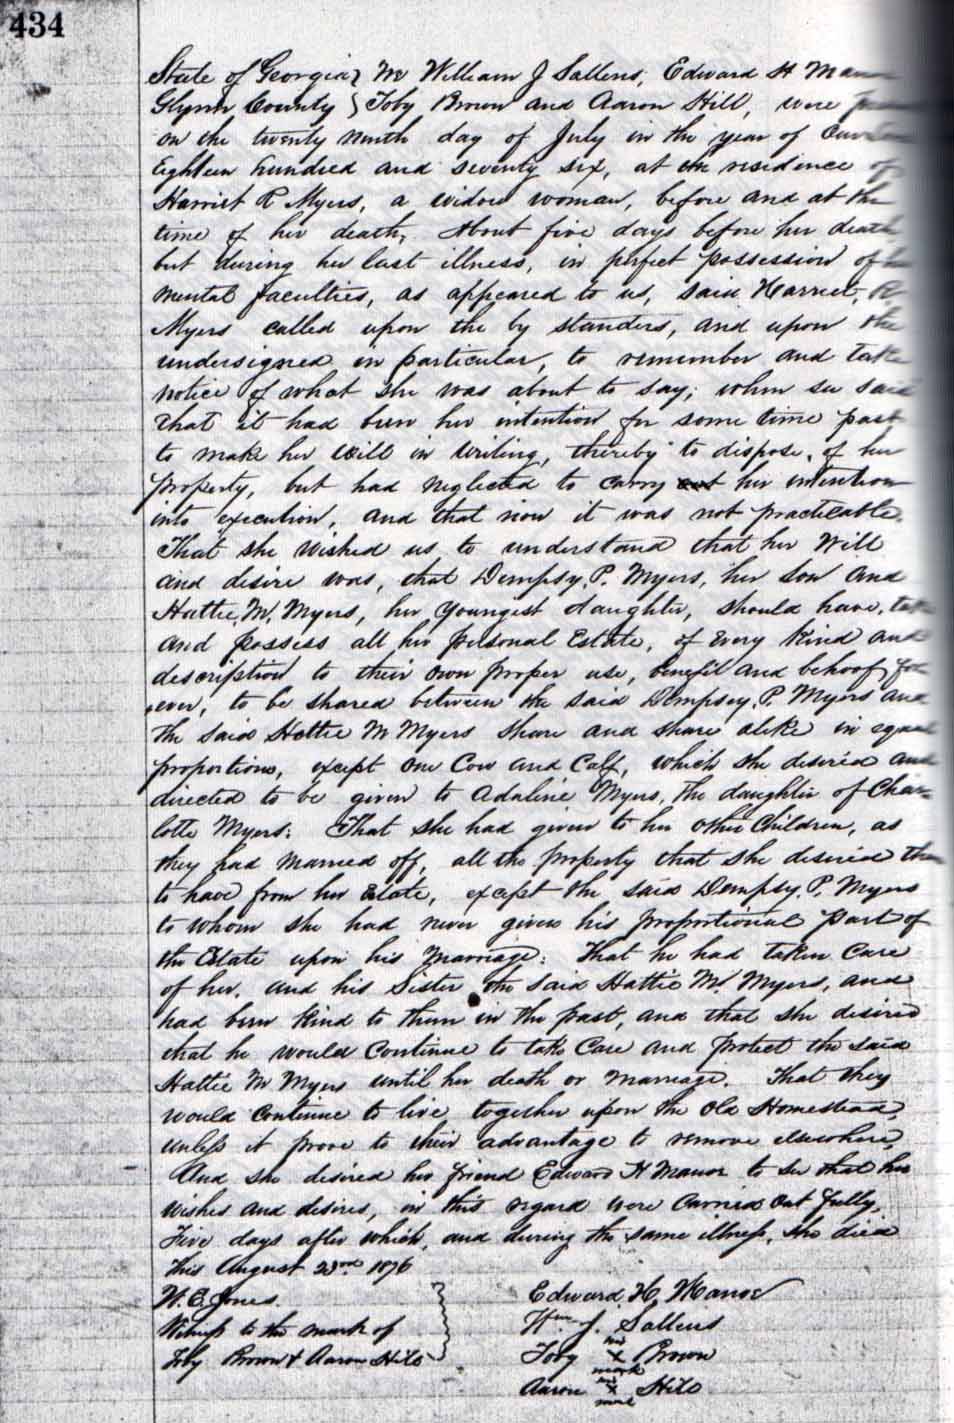 434
State of Georgia } We William J Sallens, Edward H Manor
Glynn County } Toby Brown and Aaron Hill, were
on the twenty ninth day of July in the year of
Eighteen hundred and seventy six, at the residence of
Harriet R Myers, a widow woman, before and at the
time of her death, About five days before her death
but during her last illness, in perfect possession of her
mental faculties, as appeared to us, said Harriet, R.
Myers called upon the by standers, and upon the
undersigned in particular, to remember and take
notice of what she was about to say; when she said
That it had been her intention for some time past
to make her Will in writing, thereby to dispose, of her
property, but had neglected to carry out her intention
into execution, and that now it was not practicable.
That she wished us to understand that her Will
and desire was, that Dempsy, P. Myers, her Son and
Hattie, M. Myers, her youngest daughter, should have, take
and possess all her personal Estate, of every kind and
description to their own proper use, benefit and behoof for
ever, to be shared between the said Dempsey, P. Myers and
the said Hattie M Myers share and share alike in equal
proportions, except one Cow and Calf, which she desired and
directed to be given to Adaline Myers, the daughter of Char-
lotte Myers: That she had given to her other Children, as
they had married off, all the property that she desired them
to have from her Estate, except the said Dempsy. P. Myers
to whom she had never given his proportional part of
the Estate upon his marriage: That he had taken care
of her, and his Sister the said Hattie M. Myers, and
had been kind to them in the past, and that she desired
that he would continue to take care and protect the said
Hattie M Myers until her death or marriage. That they
would continue to live together upon the old Homestead,
unless it prove to their advantage to remove elsewhere,
And she desired her friend Edward H Manor to see that her
wishes and desires, in this regard were carried out fully,
Five days after which, and during the same illness, she died
This August 23rd 1876
W. C. Jones.
Witness to the mark of
Toby Brown & Aaron Hill
Edward, H, Manor
Wm J. Sallens
Toby his X mark Brown
Aaron his X mark Hill